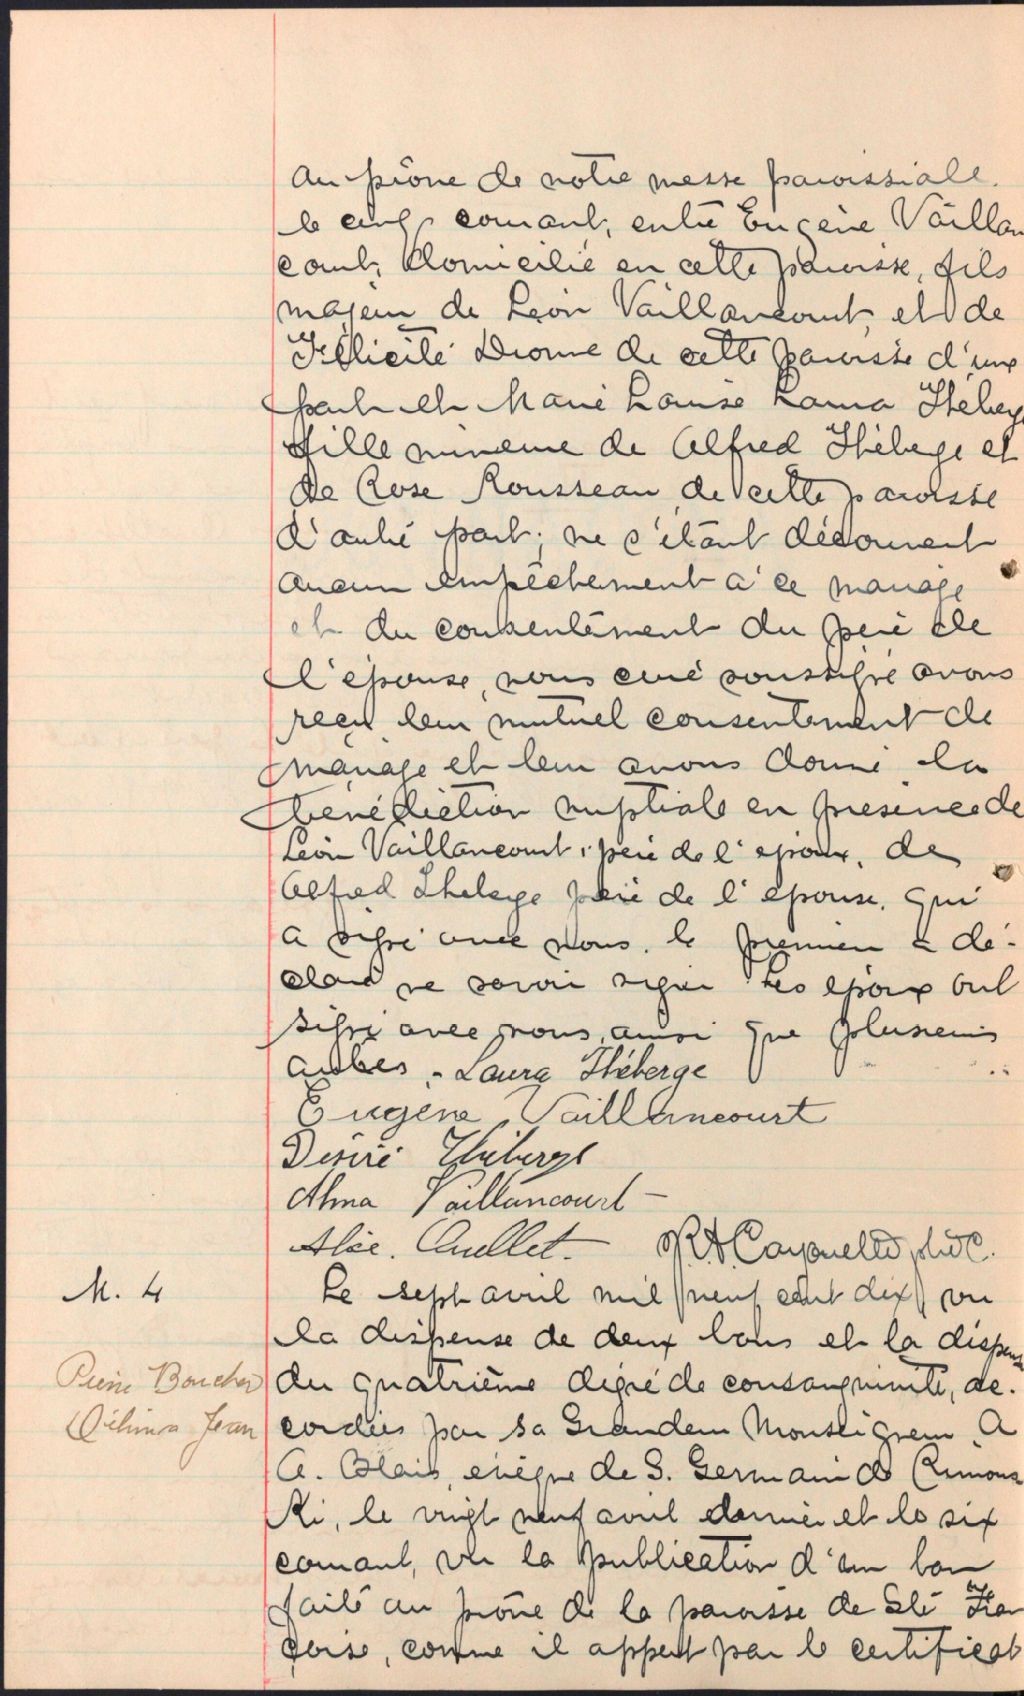 au prône de notre messe paroissiale.
le cinq courant, entre Eugène Vaillan
court, domicilié en cette paroisse, fils
majeur de Léon Vaillancourt, et de
Félicité Dionne de cette paroisse d'une
part et Marie Louise Laura Théberge
fille mineure de Alfred Théberge et
de Rose Rousseau, de cette paroisse
d'autre part; ne s'étant découvert
aucun empêchement à ce mariage
et du consentement du père de
l'épouse, nous curé soussigné avons
reçu leur mutuel consentement de
mariage et leur avons donné la
bénédiction nuptiale en présence de
Léon Vaillancourt, père de l'époux, de
Alfred Théberge père de l'épouse, qui
a signé avec nous, le premier a dé-
claré ne savoir signer Les époux ont
signé avec nous, ainsi que plusieurs
autres. - Laura Théberge
Eugène Vaillancourt
Désiré Théberge
Alma Vaillancourt -
Alice. Ouellet. - ptre C.
M. 4
Le sept avril mil neuf cent dix, vu
la dispense de deux bans et la dispense
Pierre Boucher
du quatrième degré de consanguinité, ac-
Délima Jean
cordées par Sa Grandeur Monseigneur A
A. Blais, évêque de S. Germain de Rimous
Ki, le vingt neuf avril dernier et le six
courant, vu la publication d'un ban
faite au prône de la paroisse de Ste Fran
çoise, comme il appert par le certificat